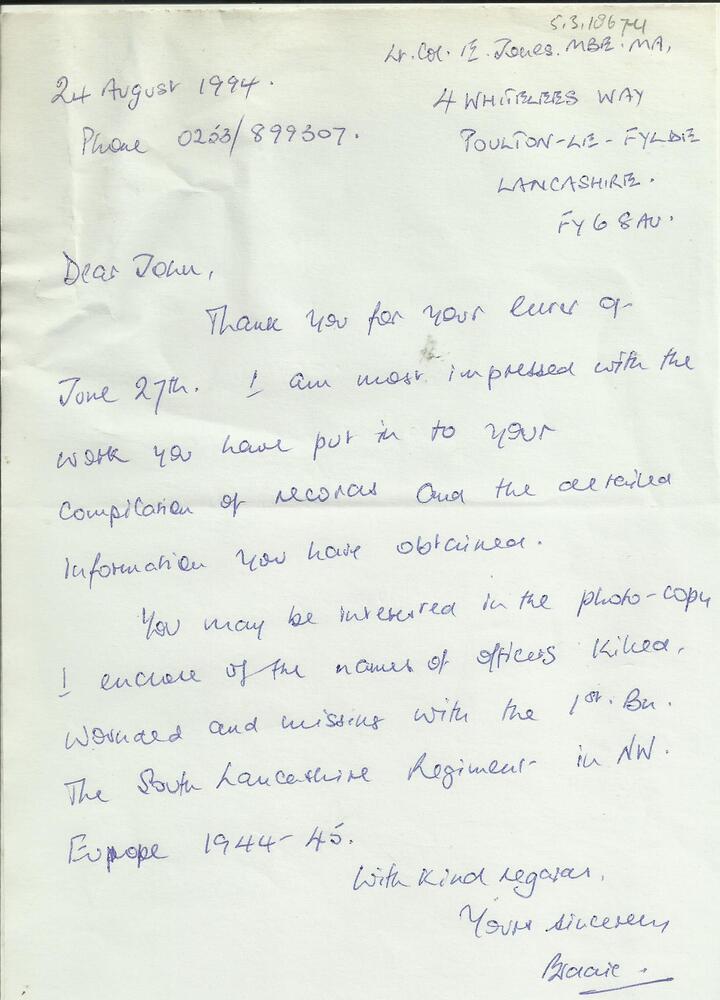 5.3.1867
Lt. Col. E. Jones. MBE. MA.
24 August 1994.
4 WHITELEES WAY
Phone 0253/899307.
POULTON-LE-FYLDE
LANCASHIRE.
FY6 8AU.
Dear John,
Thank you for your letter of
June 27th. I am most impressed with the
work you have put in to your
compilation of records and the detailed
information you have obtained.
You may be interested in the photo-copy
I enclose of the names of officers killed,
wounded and missing with the 1st. Bn.
The South Lancashire Regiment in NW.
Europe 1944-45.
With kind regards,
Yours sincerely